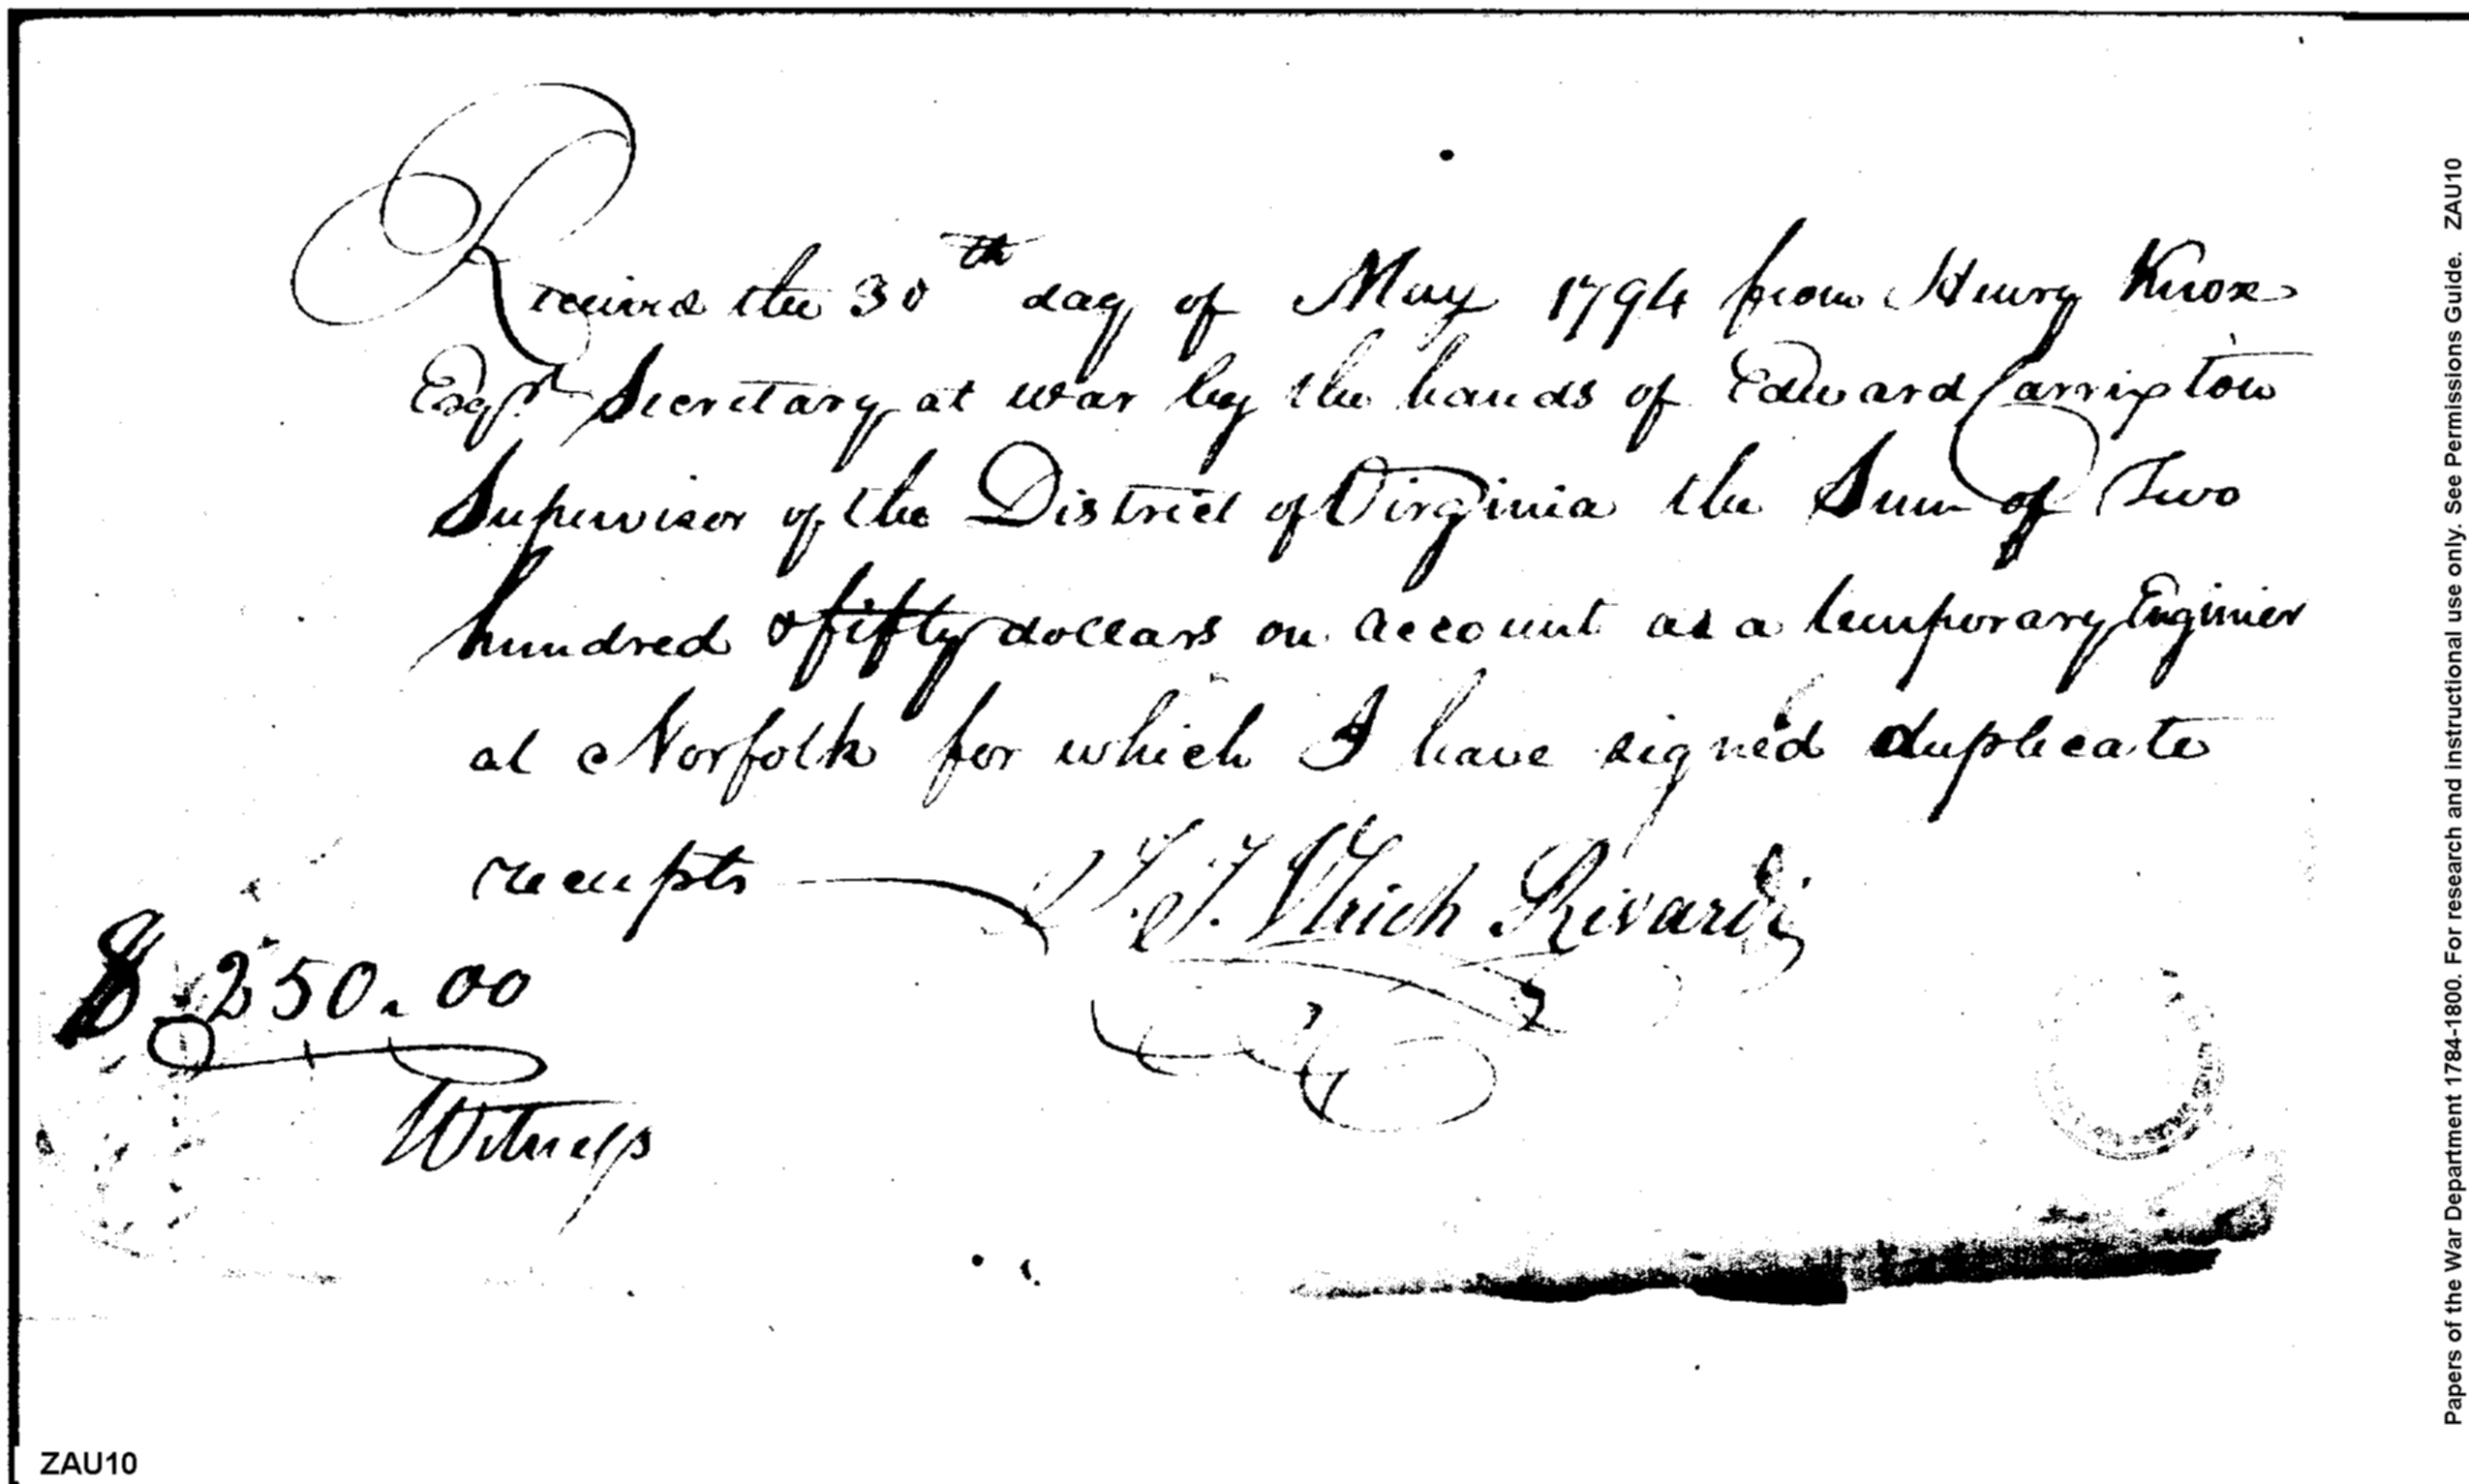 Received the 30th day of May 1794 from Henry Knox
Esqr. Secretary at war by the hands of Edward Carrington
Supervisor of the District of Virginia the Sum of Two
hundred & fifty dollars on account as a temporary Enginier
at Norfolk for which I have signed duplicate
receipts
J. J. Ulrich Rivardi
$ 250.00
Witness
ZAU10
Papers of the War Department 1784-1800. For research and instructional use only. See Permissions Guide. ZAU10